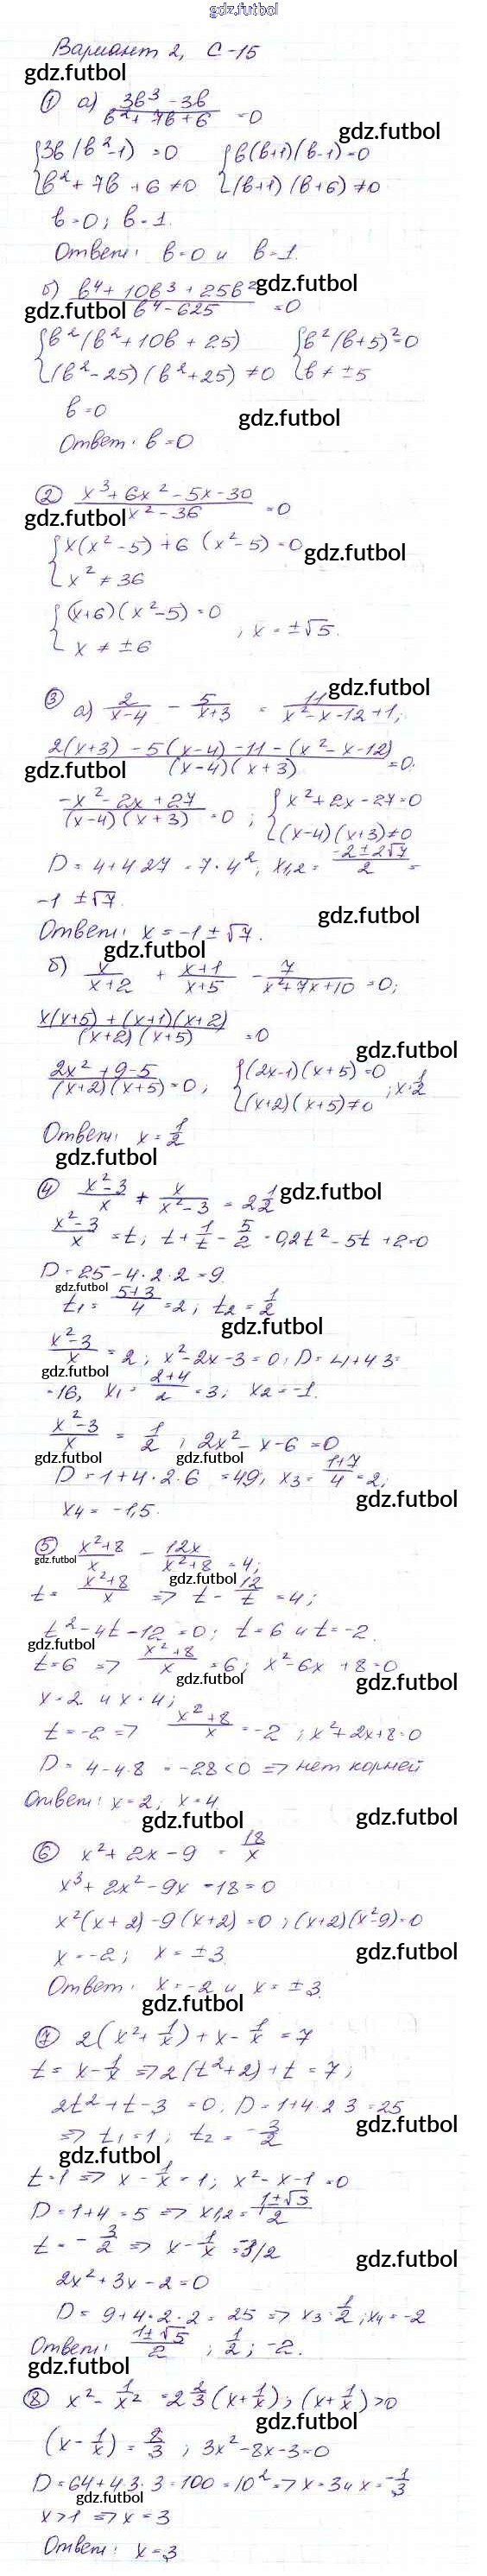 gdz.futbol
Вариант 2, С-15
gdz.futbol
① а) (3b³ - 3b)/(b² + 7b + 6) = 0
gdz.futbol
{3b(b² - 1) = 0 {b(b+1)(b-1) = 0
{b² + 7b + 6 ≠ 0 {(b+1)(b+6) ≠ 0
b = 0; b = 1.
Ответ: b = 0 и b = 1.
б) (b⁴ + 10b³ + 25b²)/(b⁴ - 625) = 0
gdz.futbol
gdz.futbol
{b²(b² + 10b + 25) {b²(b+5)² = 0
{(b² - 25)(b² + 25) ≠ 0 {b ≠ ±5
b = 0
gdz.futbol
Ответ: b = 0
② (x³ + 6x² - 5x - 30)/(x² - 36) = 0
gdz.futbol
{x(x² - 5) + 6(x² - 5) = 0
gdz.futbol
{x² ≠ 36
{(x+6)(x² - 5) = 0
{x ≠ ±6 ; x = ±√5.
③ а) 2/(x-4) - 5/(x+3) = 11/(x² - x - 12) + 1;
gdz.futbol
(2(x+3) - 5(x-4) - 11 - (x² - x - 12))/((x-4)(x+3)) = 0.
gdz.futbol
(-x² - 2x + 27)/((x-4)(x+3)) = 0; {x² + 2x - 27 = 0
{(x-4)(x+3) ≠ 0
D = 4 + 4·27 = 7·4²; x1,2 = (-2 ± 2√7)/2 =
-1 ± √7.
gdz.futbol
Ответ: x = -1 ± √7.
gdz.futbol
б) x/(x+2) + (x+1)/(x+5) - 7/(x² + 7x + 10) = 0;
(x(x+5) + (x+1)(x+2))/((x+2)(x+5)) = 0
gdz.futbol
(2x² + 9 - 5)/((x+2)(x+5)) = 0; {(2x-1)(x+5) = 0
{(x+2)(x+5) ≠ 0 ; x = 1/2
Ответ: x = 1/2
gdz.futbol
④ (x² - 3)/x + x/(x² - 3) = 2 1/2
gdz.futbol
(x² - 3)/x = t; t + 1/t - 5/2 = 0, 2t² - 5t + 2 = 0
D = 25 - 4·2·2 = 9.
gdz.futbol
t₁ = (5+3)/4 = 2; t₂ = 1/2
gdz.futbol
(x² - 3)/x = 2; x² - 2x - 3 = 0; D = 4 + 4·3 =
gdz.futbol
= 16, x₁ = (2+4)/2 = 3; x₂ = -1.
(x² - 3)/x = 1/2; 2x² - x - 6 = 0
gdz.futbol
gdz.futbol
D = 1 + 4·2·6 = 49; x₃ = (1+7)/4 = 2;
gdz.futbol
x₄ = -1,5.
⑤ (x² + 8)/x - 12x/(x² + 8) = 4;
gdz.futbol
gdz.futbol
t = (x² + 8)/x ⇒ t - 12/t = 4;
t² - 4t - 12 = 0; t = 6 и t = -2.
gdz.futbol
t = 6 ⇒ (x² + 8)/x = 6; x² - 6x + 8 = 0
gdz.futbol
gdz.futbol
x = 2 и x = 4;
t = -2 ⇒ (x² + 8)/x = -2; x² + 2x + 8 = 0
D = 4 - 4·8 = -28 < 0 ⇒ нет корней
Ответ: x = 2; x = 4.
gdz.futbol
gdz.futbol
⑥ x² + 2x - 9 = 18/x
x³ + 2x² - 9x - 18 = 0
x²(x+2) - 9(x+2) = 0; (x+2)(x² - 9) = 0
x = -2; x = ±3.
gdz.futbol
Ответ: x = -2 и x = ±3.
gdz.futbol
⑦ 2(x² + 1/x) + x - 1/x = 7
t = x - 1/x ⇒ 2(t² + 2) + t = 7;
2t² + t - 3 = 0. D = 1 + 4·2·3 = 25
gdz.futbol
⇒ t₁ = 1; t₂ = -3/2
gdz.futbol
t = 1 ⇒ x - 1/x = 1; x² - x - 1 = 0
D = 1 + 4 = 5 ⇒ x1,2 = (1 ± √5)/2
t = -3/2 ⇒ x - 1/x = -3/2
gdz.futbol
2x² + 3x - 2 = 0
D = 9 + 4·2·2 = 25 ⇒ x₃ = 1/2; x₄ = -2
Ответ: (1 ± √5)/2; 1/2; -2.
gdz.futbol
⑧ x² - 1/x² = 2 2/3 (x + 1/x); (x + 1/x) > 0
gdz.futbol
(x - 1/x) = 8/3; 3x² - 8x - 3 = 0
D = 64 + 4·3·3 = 100 = 10² ⇒ x = 3 и x = -1/3
gdz.futbol
x > 1 ⇒ x = 3
Ответ: x = 3